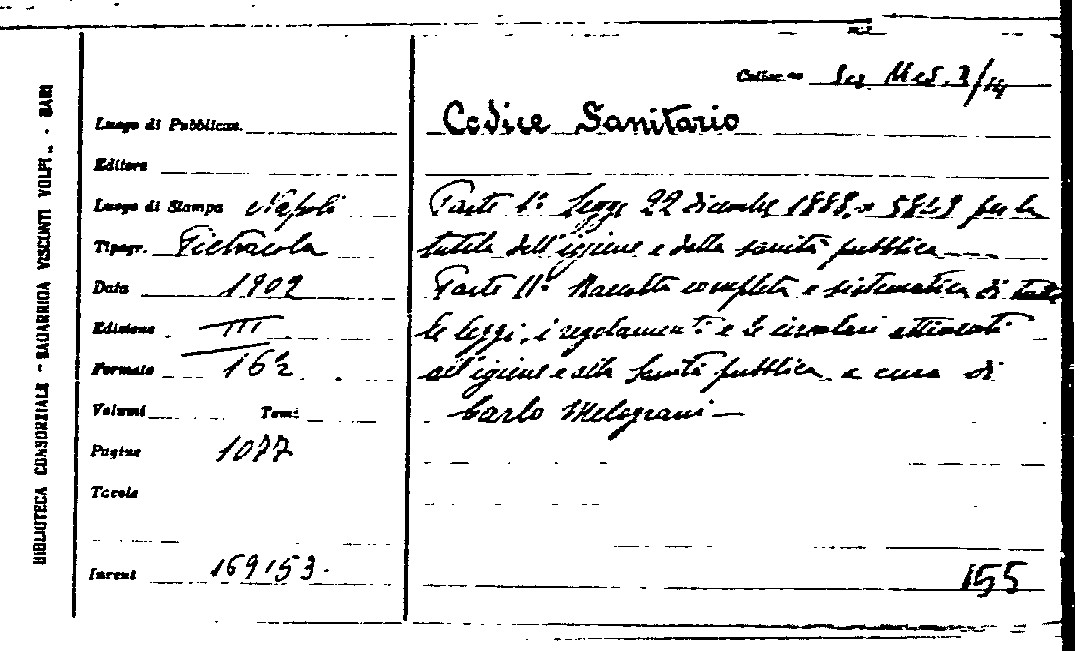 BIBLIOTECA CONSORZIALE - SAGARRIGA VISCONTI VOLPI - BARI
Colloc.ne Sez Med. 3/14
Luogo di Pubblicaz.
Editore
Luogo di Stampa Napoli
Tipogr. Pietrocola
Data 1902
Edizione III
Formato 16º
Volumi Tomi
Pagine 1077
Tavole
Invent 169153.
Codice Sanitario
Parte Iª Legge 22 dicembre 1888, n 5849 per la
tutela dell'igiene e della sanità pubblica
Parte IIª Raccolta completa e sistematica di tutte
le leggi, i regolamenti e le circolari attinenti
all'igiene e alla sanità pubblica a cura di
Carlo Melograni —
155